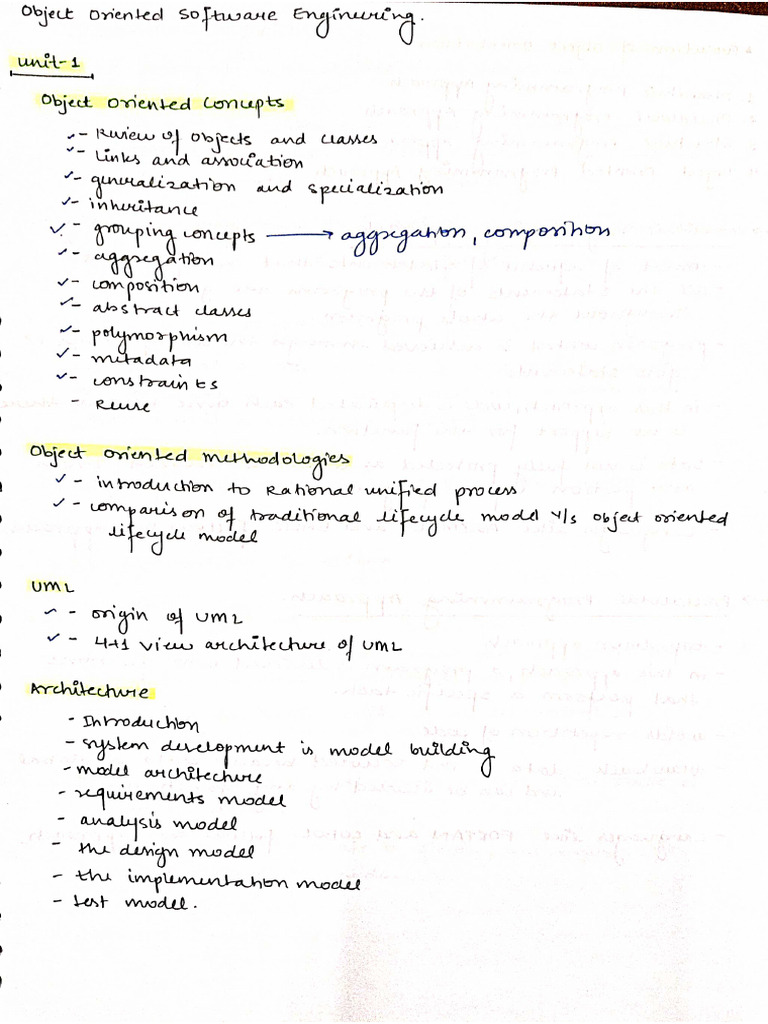 Object Oriented Software Engineering.
Unit-1
Object Oriented Concepts
- Review of objects and classes
- Links and association
- generalization and specialization
- inheritance
- grouping concepts → aggregation, composition
- aggregation
- composition
- abstract classes
- polymorphism
- metadata
- constraints
- Reuse
Object oriented methodologies
- introduction to Rational unified process
- comparison of traditional lifecycle model v/s object oriented
lifecycle model
UML
- origin of UML
- 4+1 view architecture of UML
Architecture
- Introduction
- system development is model building
- model architecture
- requirements model
- analysis model
- the design model
- the implementation model
- test model.